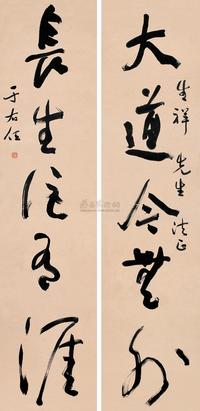 大道今無外
生祥先生法正
長生詎有涯
于右任